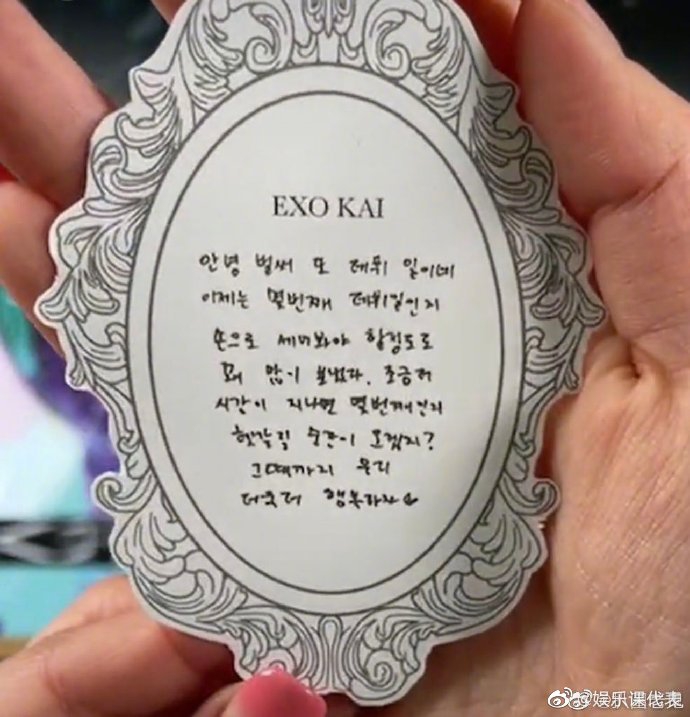 EXO KAI
안녕 벌써 또 데뷔 일이네
이제는 몇번째 데뷔일인지
손으로 세어봐야 할정도로
꽤 많이 보냈다. 조금더
시간이 지나면 몇번째인지
헷갈릴 순간이 오겠지?
그때까지 우리
더욱더 행복하자
@娱乐课代表